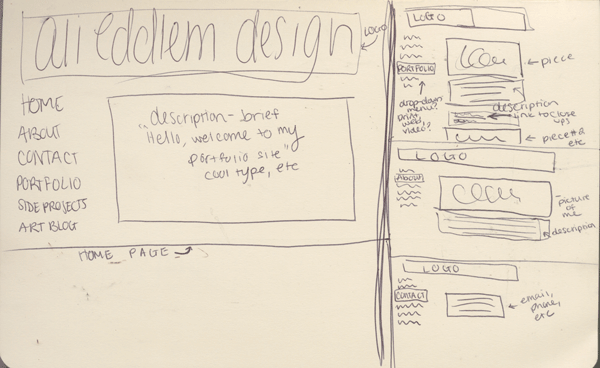 ali eddlem design
LOGO
HOME
ABOUT
CONTACT
PORTFOLIO
SIDE PROJECTS
ART BLOG
description - brief
"Hello, welcome to my
portfolio site"
cool type, etc
HOME PAGE
LOGO
PORTFOLIO
drop-down
menu?
print,
web,
video?
piece
description
link to close
ups
piece #2
etc
LOGO
ABOUT
picture
of
me
description
LOGO
CONTACT
email,
phone,
etc